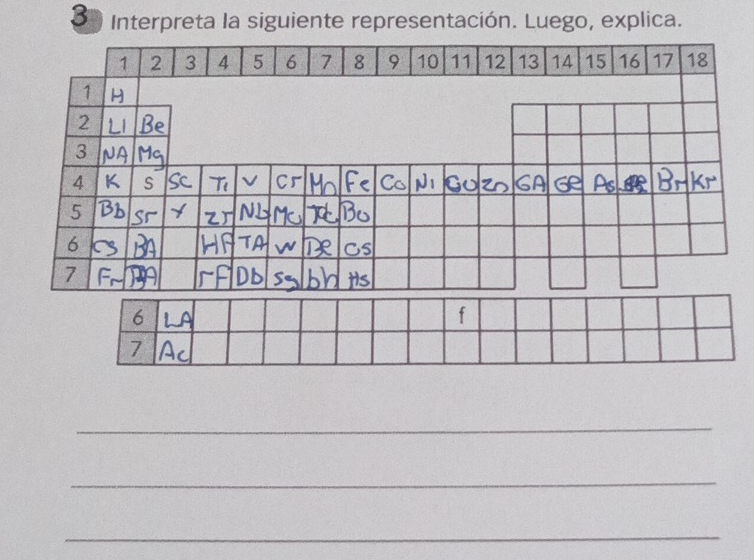 3 Interpreta la siguiente representación. Luego, explica.
1 2 3 4 5 6 7 8 9 10 11 12 13 14 15 16 17 18
1 H
2 LI Be
3 NA Mg
4 K S SC Ti V Cr Mn Fe Co Ni Cu Zn GA Ge As Br Kr
5 Bb Sr Y Zr Nb Mo Tc
6 CS BA HF TA W OS
7 Fr rF Db Sg bh Hs
6 LA f
7 Ac